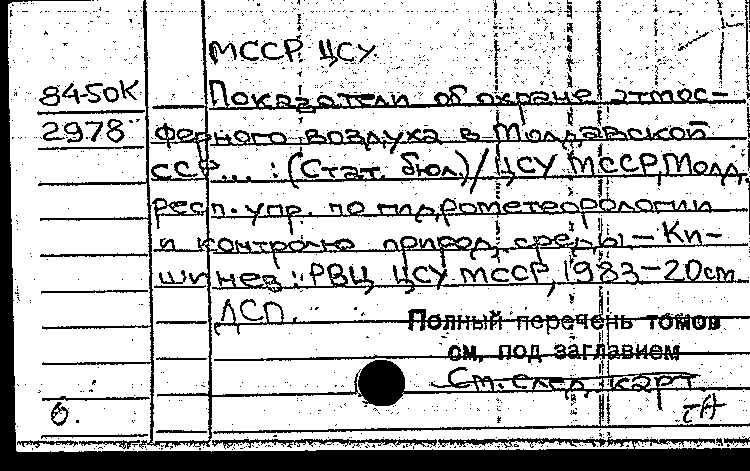 МССР. ЦСУ.
84-50К Показатели об охране атмос-
2978 ферного воздуха в Молдавской
ССР... : (Стат. бюл.) / ЦСУ МССР, Молд.
респ. упр. по гидрометеорологии
и контролю природ. среды. – Ки-
шинев : РВЦ ЦСУ МССР, 1983 – 20см.
ДСП.
Полный перечень томов
см. под заглавием
См. след. карт.
6.